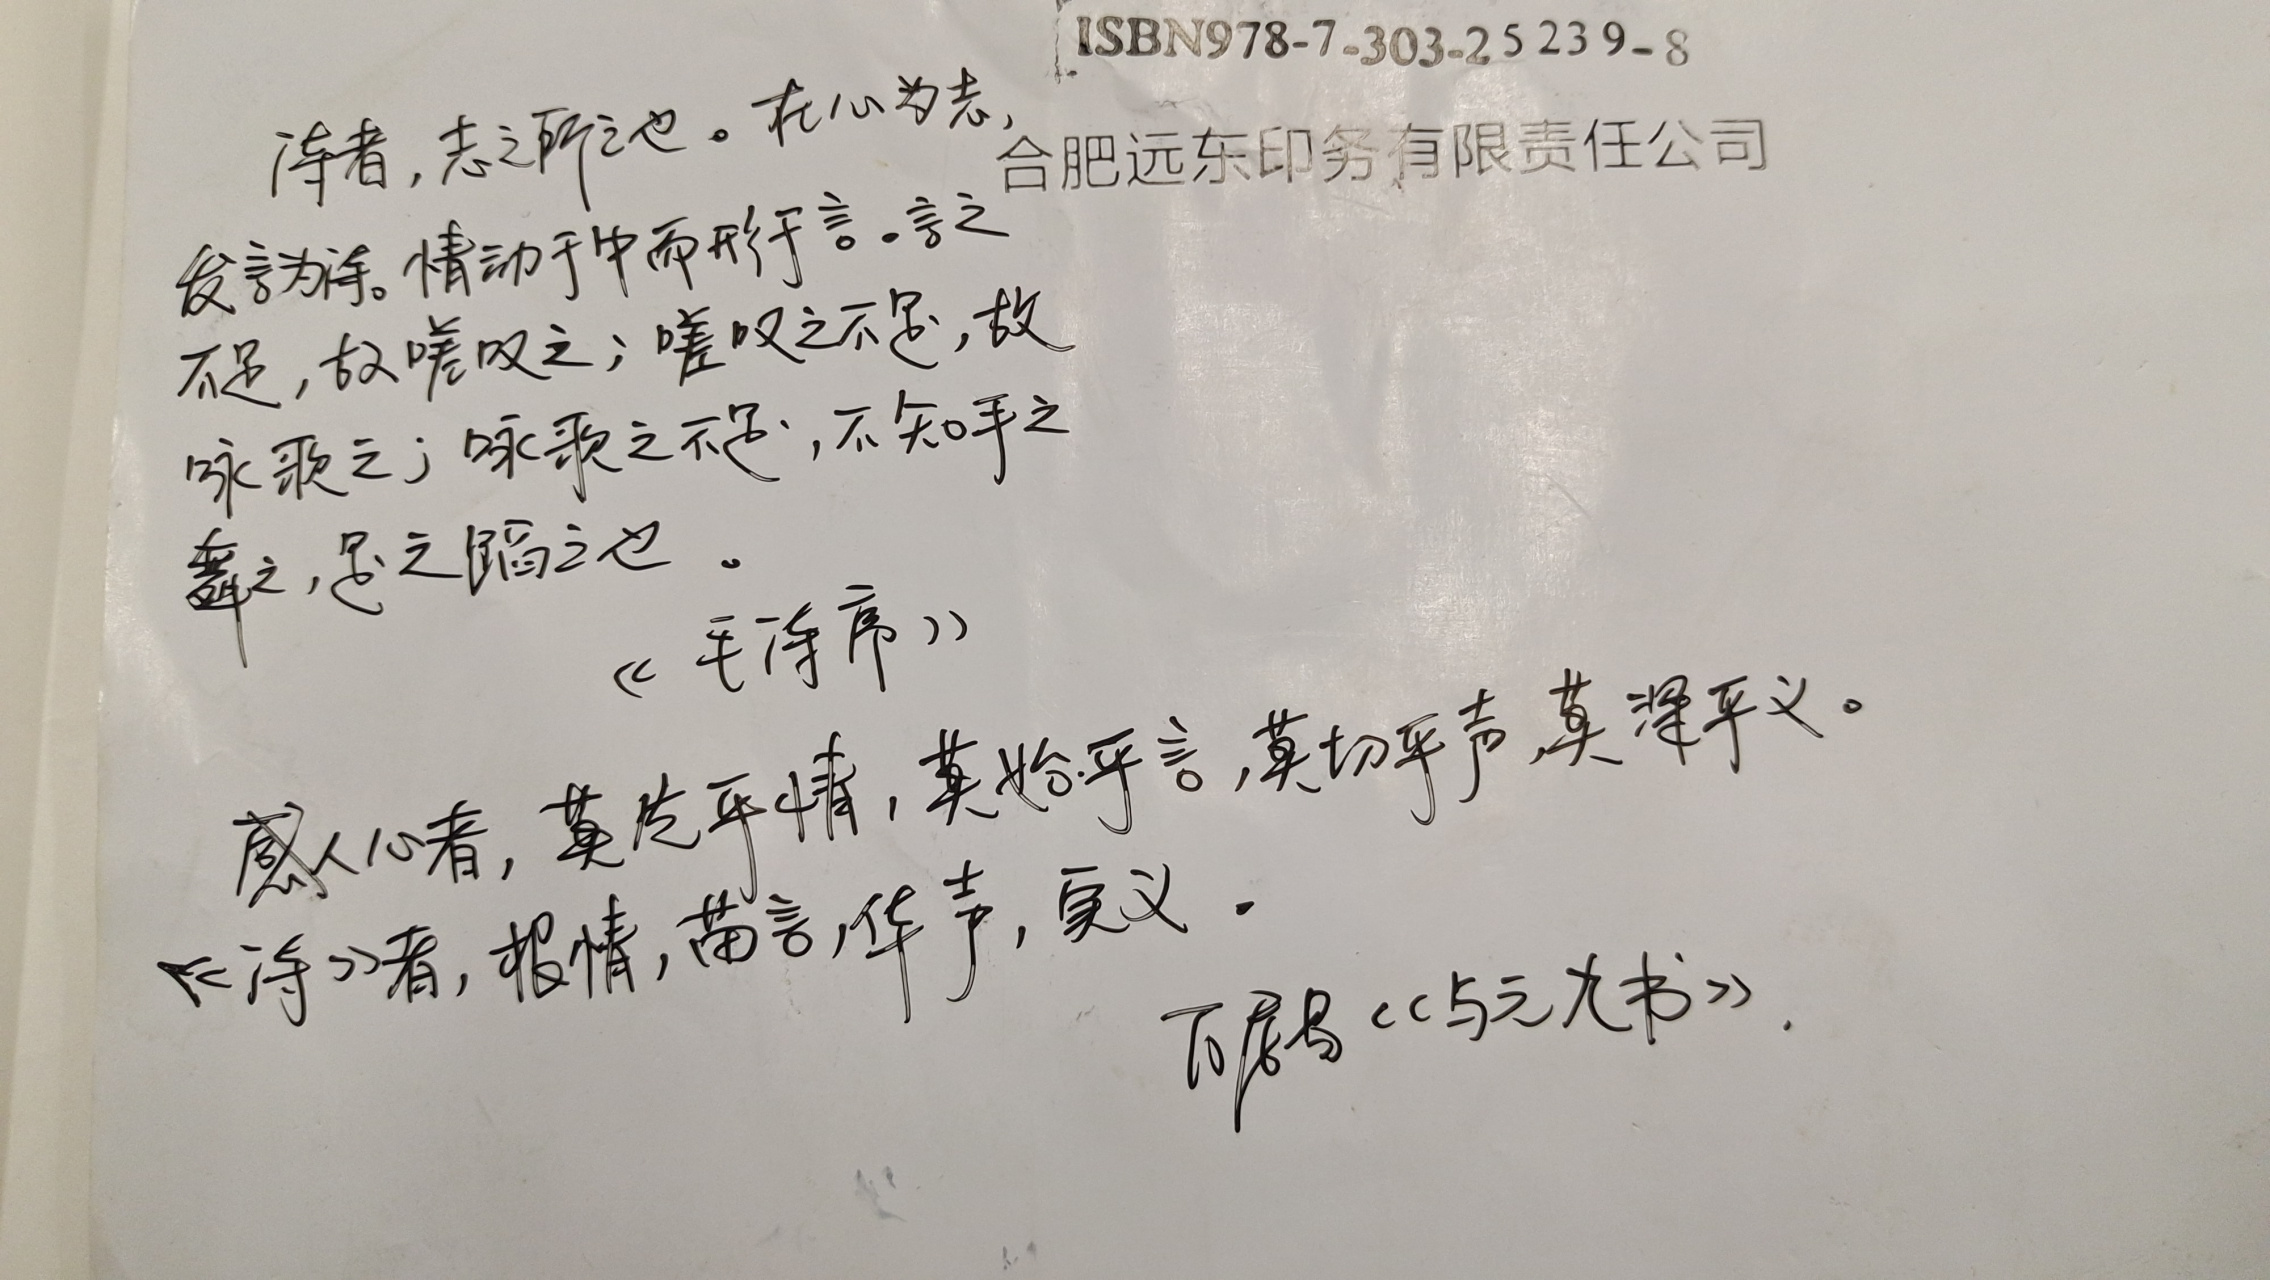 ISBN978-7-303-25239-8
合肥远东印务有限责任公司
诗者,志之所之也。在心为志,
发言为诗。情动于中而形于言。言之
不足,故嗟叹之;嗟叹之不足,故
咏歌之;咏歌之不足,不知手之
舞之,足之蹈之也。
《毛诗序》
感人心者,莫先乎情,莫始乎言,莫切乎声,莫深乎义。
《诗》者,根情,苗言,华声,实义.
白居易《与元九书》.